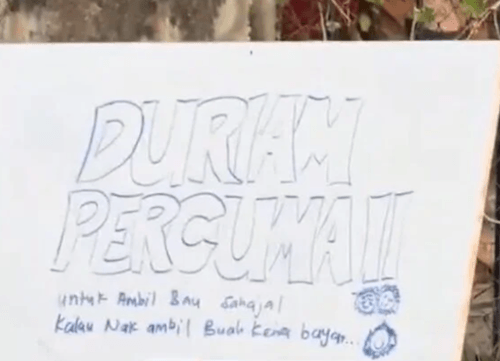 DURIAN
PERCUMA!!
untuk Ambil Bau Sahaja!
Kalau Nak ambil Buah Kena bayar...